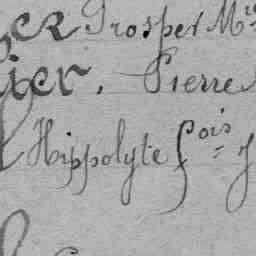 er Prosper M
ier. Pierre
Hippolyte fois